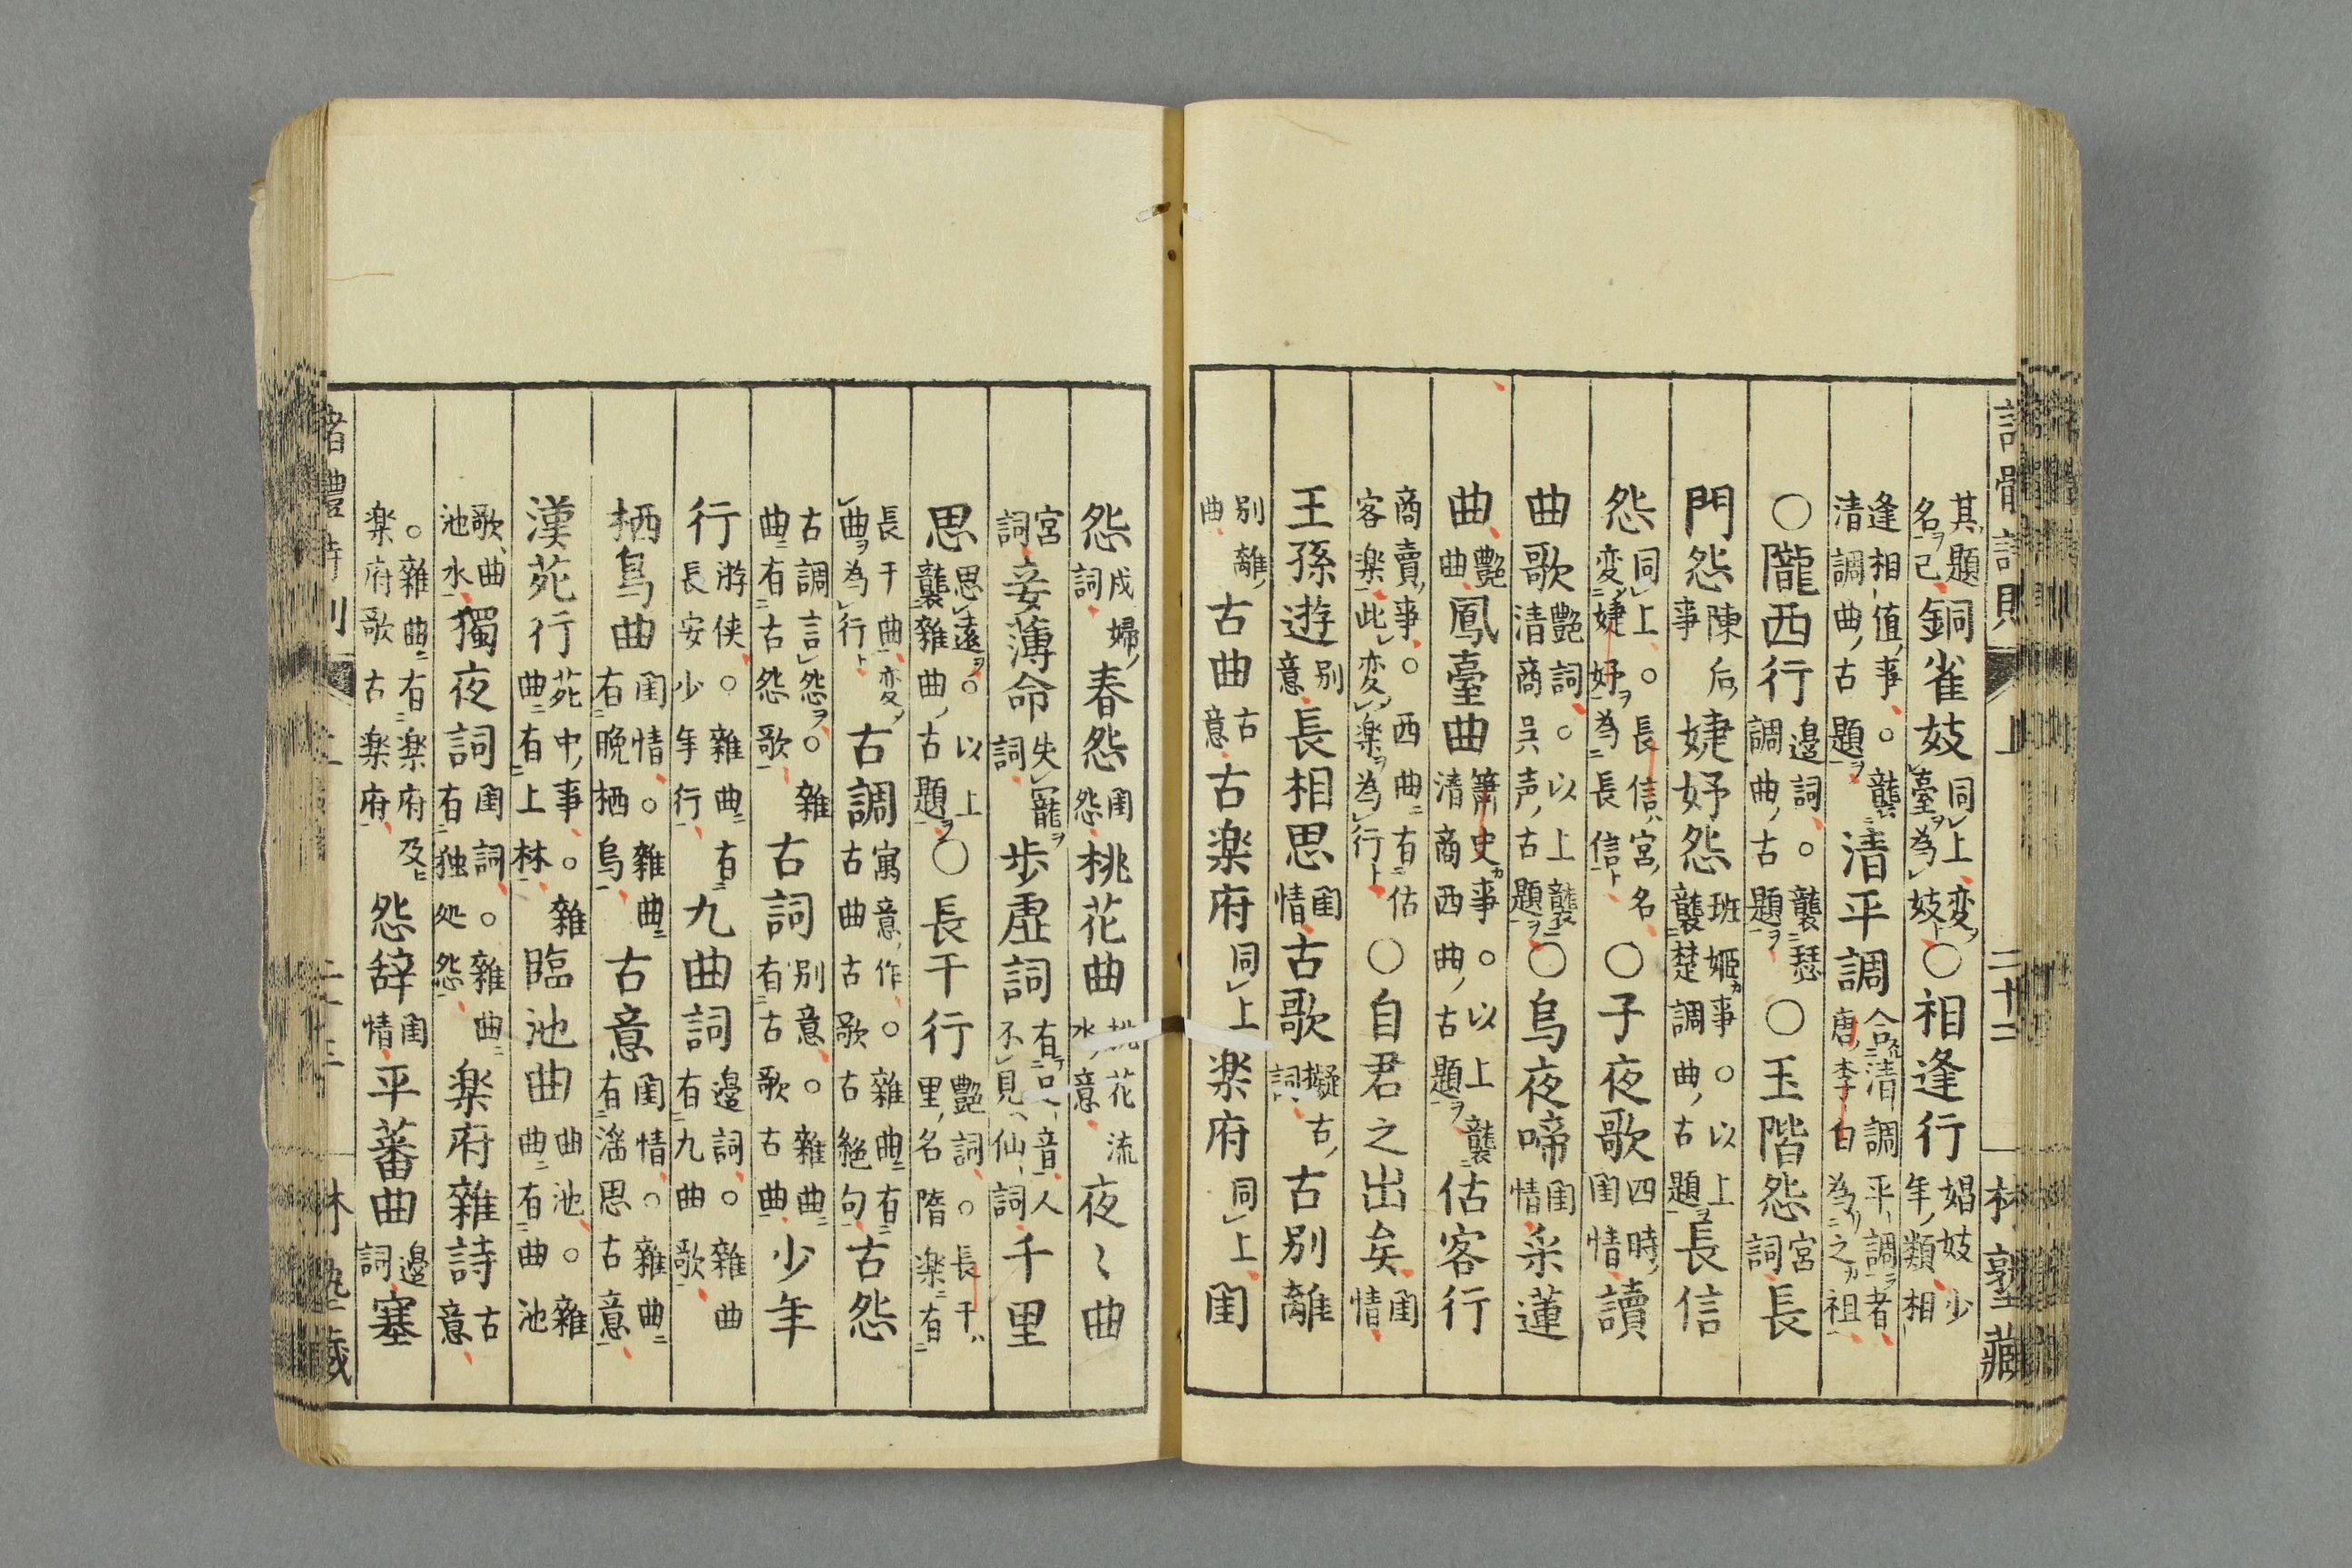 詩體詩則 上 二十二 林塾藏
其題名己銅雀妓同上変臺為妓○相逢行娼妓少年類相
逢相値事。襲清調曲古題清平調合清調平調者唐李白為之祖
○隴西行邊詞。襲瑟調曲古題○玉階怨宮詞長
門怨陳后事婕妤怨班姬事。以上襲楚調曲古題長信
怨同上。長信宮名変婕妤為長信○子夜歌四時閨情讀
曲歌艶詞。以上襲清商呉声古題○烏夜啼閨情采蓮
曲艶曲鳳臺曲簫史事。以上襲清商西曲古題估客行
商賣事。西曲有估客楽此変楽為行○自君之出矣閨情
王孫遊別意長相思閨情古歌擬古詞古別離
別離曲古曲古意古楽府同上楽府同上閨
怨戍婦詞春怨閨怨桃花曲桃花流水意夜〻曲
宮詞妾薄命失寵詞歩虚詞有音人不見仙詞千里
思思遠。以上襲雜曲古題○長干行艶詞。長干里名隋楽有
長干曲変曲為行古調寓意作。雜曲有古曲古歌古絶句古怨
古調言怨。雜曲有古怨歌古詞別意。雜曲有古歌古曲少年
行游侠。雜曲有長安少年行九曲詞邊詞。雜曲有九曲歌
栖烏曲閨情。雜曲有晩栖烏古意閨情。雜曲有滛思古意
漢苑行苑中事。雜曲有上林臨池曲曲池。雜曲有曲池
歌曲池水獨夜詞閨詞。雜曲有独処怨楽府雜詩古意
。雜曲有楽府及楽府歌古楽府怨辞閨情平蕃曲邊詞塞